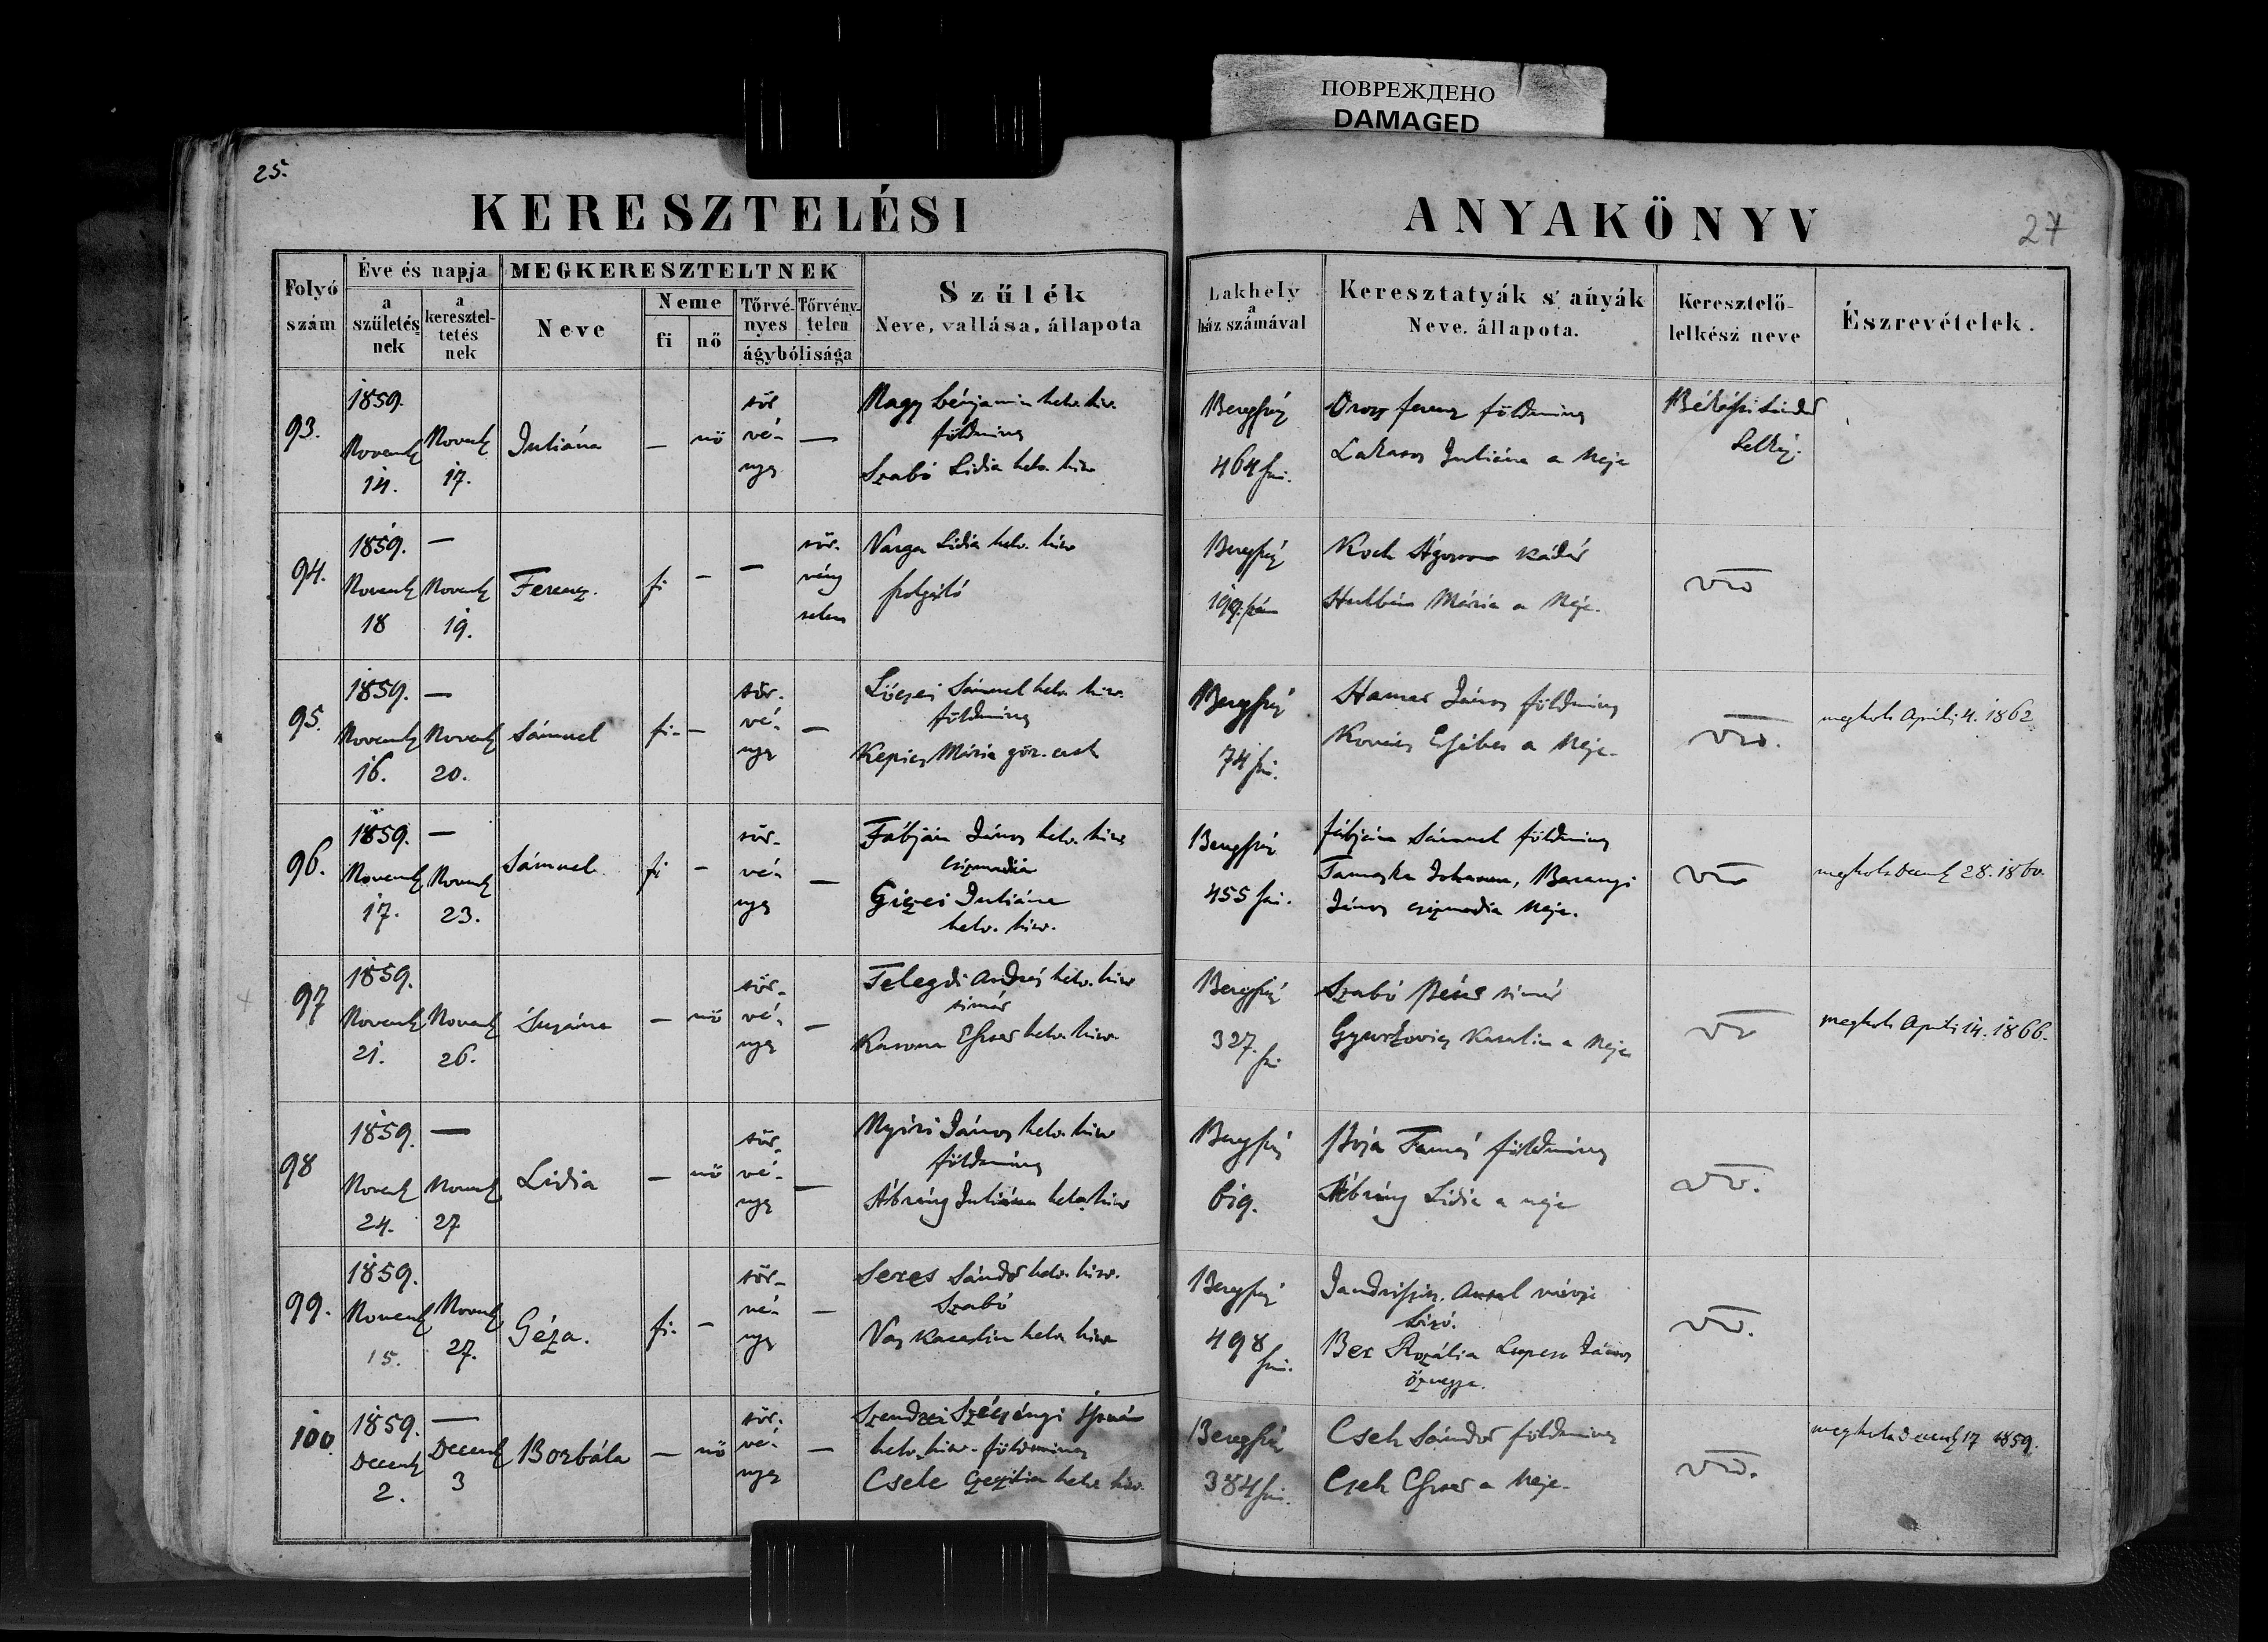 ПОВРЕЖДЕНО
DAMAGED
25.
KERESZTELÉSI
ANYAKÖNYV
27
Folyó szám
Éve és napja
a születésnek
a kereszteltetésnek
MEGKERESZTELTNEK
Neve
Neme
fi
nő
Törvényes
Törvénytelen
ágybólisága
Szűlék
Neve, vallása, állapota
Lakhely
a
ház számával
Keresztatyák s' anyák
Neve, állapota.
Keresztelő-
lelkész neve
Észrevételek.
93.
1859.
Novemb 14.
Novemb 17.
Juliána
—
nő
törvényes
—
Nagy Benjamin helv. hiv.
földműves
Szabó Lidia helv. hiv
Beregsz
464
Orosz Ferenc földműves
Lakatos Juliána a neje
Sándor
Lelkész.
94.
1859. —
Novemb 18
Novemb 19.
Ferencz.
fi
–
–
törvénytelen
Varga Lidia helv. hiv
szolgáló
Beregsz
Koch kádár
Mária a Neje.
95.
1859. —
Novemb 16.
Novemb 20.
Sámuel
fi.
–
törvényes
–
Lőczei Sámuel helv. hiv.
földműves
Mária gör. cath
Beregsz
74
Hamar János földműves
Kovács Erzsébet a Neje.
megholt April 4. 1862
96.
1859. —
Novemb 17.
Novemb 23.
Sámuel
fi
–
törvényes
–
Fábján János helv. hiv
csizmadia
Giczei Juliána
helv. hiv.
Beregsz
455
Fábján Sámuel földműves
Tamaska Johanna, Baranyi
János csizmadia Neje.
megholt Decemb 28. 1860.
97
1859.
Novemb 21.
Novemb 26.
Susána
–
nő
törvényes
–
Telegdi András helv. hiv
timár
Katona Eszter helv. hiv.
Beregsz
327.
Szabó Péter timár
Gyurkovics Katalin a Neje
megholt April 14. 1866.
98
1859. —
Novemb 24.
Novemb 27
Lidia
–
nő
törvényes
–
Nyiri János helv. hiv
földműves
Ábrány Juliánna helv. hiv
Beregsz
619.
Bója Tamás földműves
Ábrány Lidia a neje
99.
1859.
Novemb 15.
Novemb 27.
Géza.
fi.
–
törvényes
–
Seres Sándor helv. hiv.
Szabó
Vas Katalin helv. hiv
Beregsz
498
Antal városi
biró.
Ber Rozália János
özvegye.
100.
1859. —
Decemb 2.
Decemb 3
Borbála
–
nő
törvényes
–
Szendrei Szécsényi István
helv. hiv. földműves
Cseh helv. hiv.
Beregsz
384
Cseh Sándor földműves
Cseh Eszter a Neje.
megholt Decemb 17 1859.